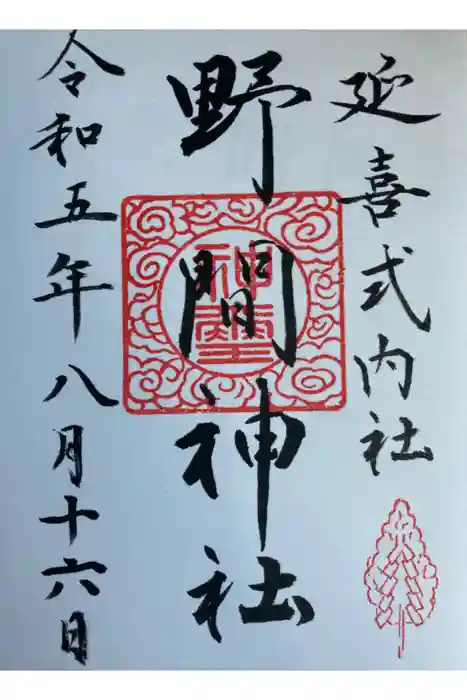 延喜式内社
野間神社
令和五年八月十六日